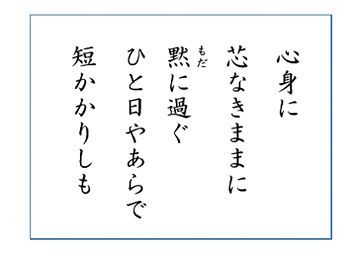 心身に
芯なきままに
黙に過ぐ
もだ
ひと日やあらで
短かかりしも